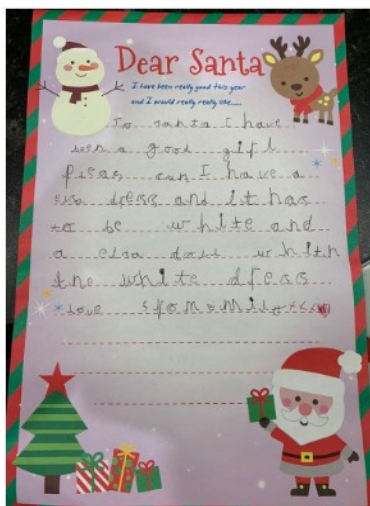 Dear Santa
I have been really good this year
and I would really really like......
To santa I have
been a good girl
pleas can I have a
elsa dress and it has
to be white and
a elsa doll whith
the white dress
love from